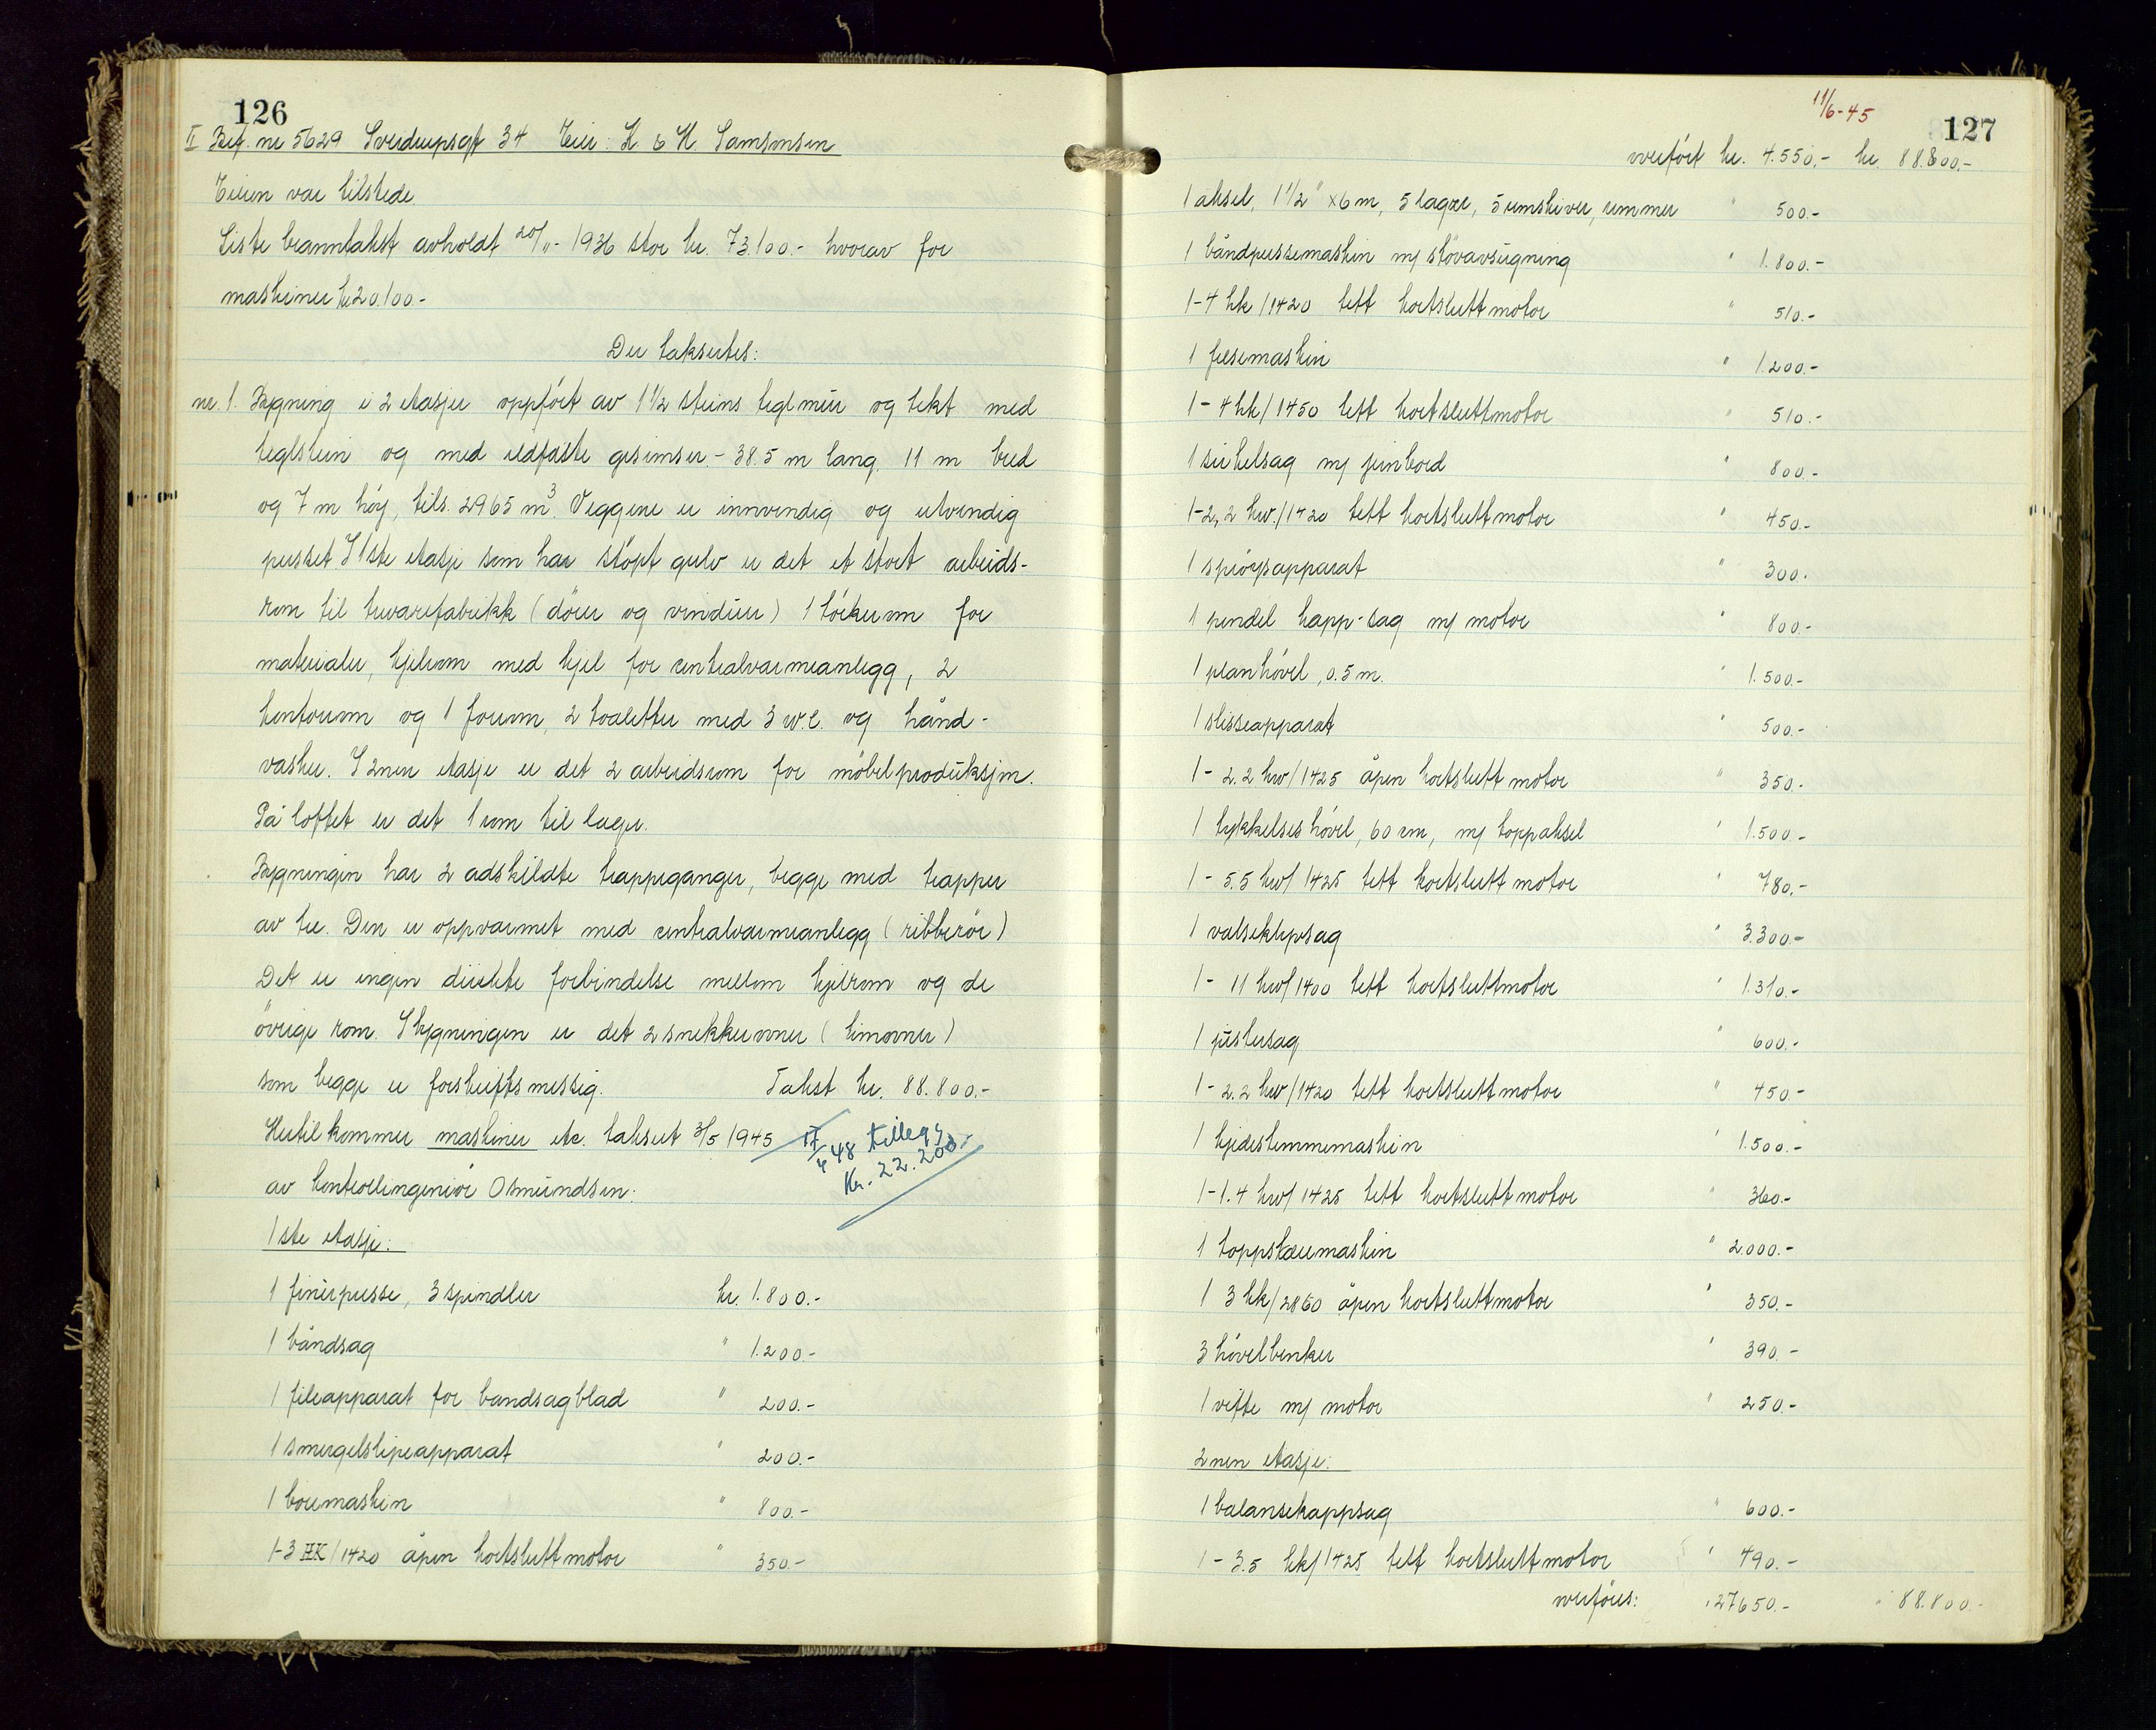 126
II Byg. nr 5629 Sverdrupsgt 34 Eier: K. & H. Samsonsen
Eieren var tilstede
Siste branntakst avholdt 20/11-1936 stor kr. 73.100.- hvorav for
maskiner kr 20.100-
Der taksertes:
nr. 1. Bygning i 2 etasjer oppført av 1½ steins teglmur og tekt med
teglstein og med ildfaste gesimser.- 38.5 m lang, 11 m bred
og 7 m høy, tils. 2965 m³. Veggene er innvendig og utvendig
pusset I 1ste etasje som har støpt gulv er det et stort arbeids-
rom til trevarefabrikk (dører og vinduer) 1 tørkerom for
materialer, kjelrom med kjel for centralvarmeanlegg, 2
kontorrom og 1 forrom, 2 toaletter med 3 w.c. og hånd-
vasker. I 2nen etasje er det 2 arbeidsrom for møbelproduksjon.
På loftet er det 1 rom til lager.
Bygningen har 2 adskildte trappeganger, begge med trapper
av tre. Den er oppvarmet med centralvarmeanlegg (ribberør)
Det er ingen direkte forbindelse mellom kjelrom og de
øvrige rom. I bygningen er det 2 snekkerovner (limovner)
som begge er forskriftsmessig. Takst kr. 88.800.-
Hertil kommer maskiner etc. taksert 3/5 1945
48 tillegg
Kr. 22.200.-
av kontrollingeniør Osmundsen:
1ste etasje:
1 finerpusse, 3 spindler kr. 1.800.-
1 båndsag " 1.200.-
1 fileapparat for bandsagblad " 200.-
1 smergelslipeapparat " 200.-
1 boremaskin " 800.-
1-3 HK/1420 åpen kortsluttmotor " 350.-
11/6-45
127
overført kr. 4.550.- kr. 88.800-
1 aksel, 1½" x 6 m, 5 lagrer, 5 remskiver, remmer " 500.-
1 båndpussemaskin m/ støvavsugning " 1.800.-
1-4 hk/1420 tett kortsluttmotor " 510.-
1 fresemaskin " 1.200.-
1-4 hk/1450 tett kortsluttmotor " 510.-
1 sirkelsag m/ jernbord " 800.-
1-2,2 kw./1420 tett kortsluttmotor " 450.-
1 sprøyteapparat " 300.
1 pendel kapp-sag m/ motor " 800.-
1 planhøvel, 0.5 m. " 1.500.-
1 slisseapparat " 500.-
1-2.2 kw/1425 åpen kortslutt motor " 350.-
1 tykkelseshøvel, 60 cm, m/ toppaksel " 1.500.-
1-5.5 kw/1425 tett kortslutt motor " 780.-
1 valseklypsag " 3.300.-
1-11 kw/1400 tett kortsluttmotor " 1.310.-
1 justersag " 600.-
1-2.2 kw/1420 tett kortsluttmotor " 450.-
1 kjedestemmemaskin " 1.500.-
1-1.4 kw/1425 tett kortsluttmotor " 360.-
1 toppskæremaskin " 2.000.-
1 3 hk/2860 åpen kortsluttmotor " 350.-
3 høvelbenker " 390.-
1 vifte m/ motor " 250.-
2nen etasje:
1 balansekappsag " 600.-
1-3.5 hk/1425 tett kortsluttmotor " 490.-
overføres: " 27650.- " 88.800.-